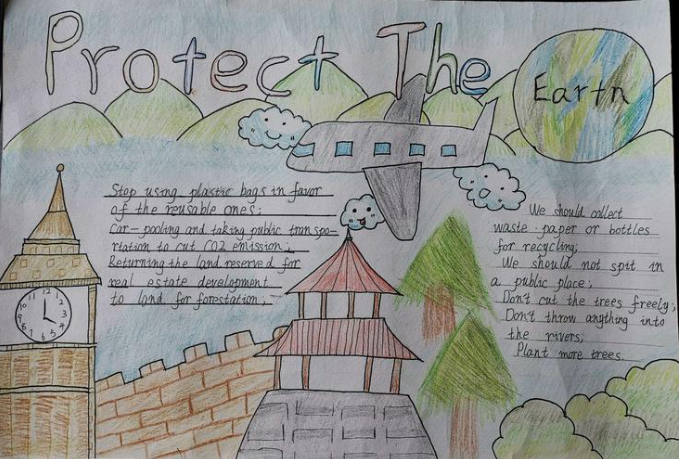 Protect The
Earth
Stop using plastic bags in favor
of the reusable ones;
Car-pooling and taking public transpo-
rtation to cut CO2 emission;
Returning the land reserved for
real estate development
to land for forestation;
We should collect
waste paper or bottles
for recycling;
We should not spit in
a public place;
Don't cut the trees freely;
Don't throw anything into
the rivers;
Plant more trees.
12
1
2
3
4
5
6
7
8
9
10
11